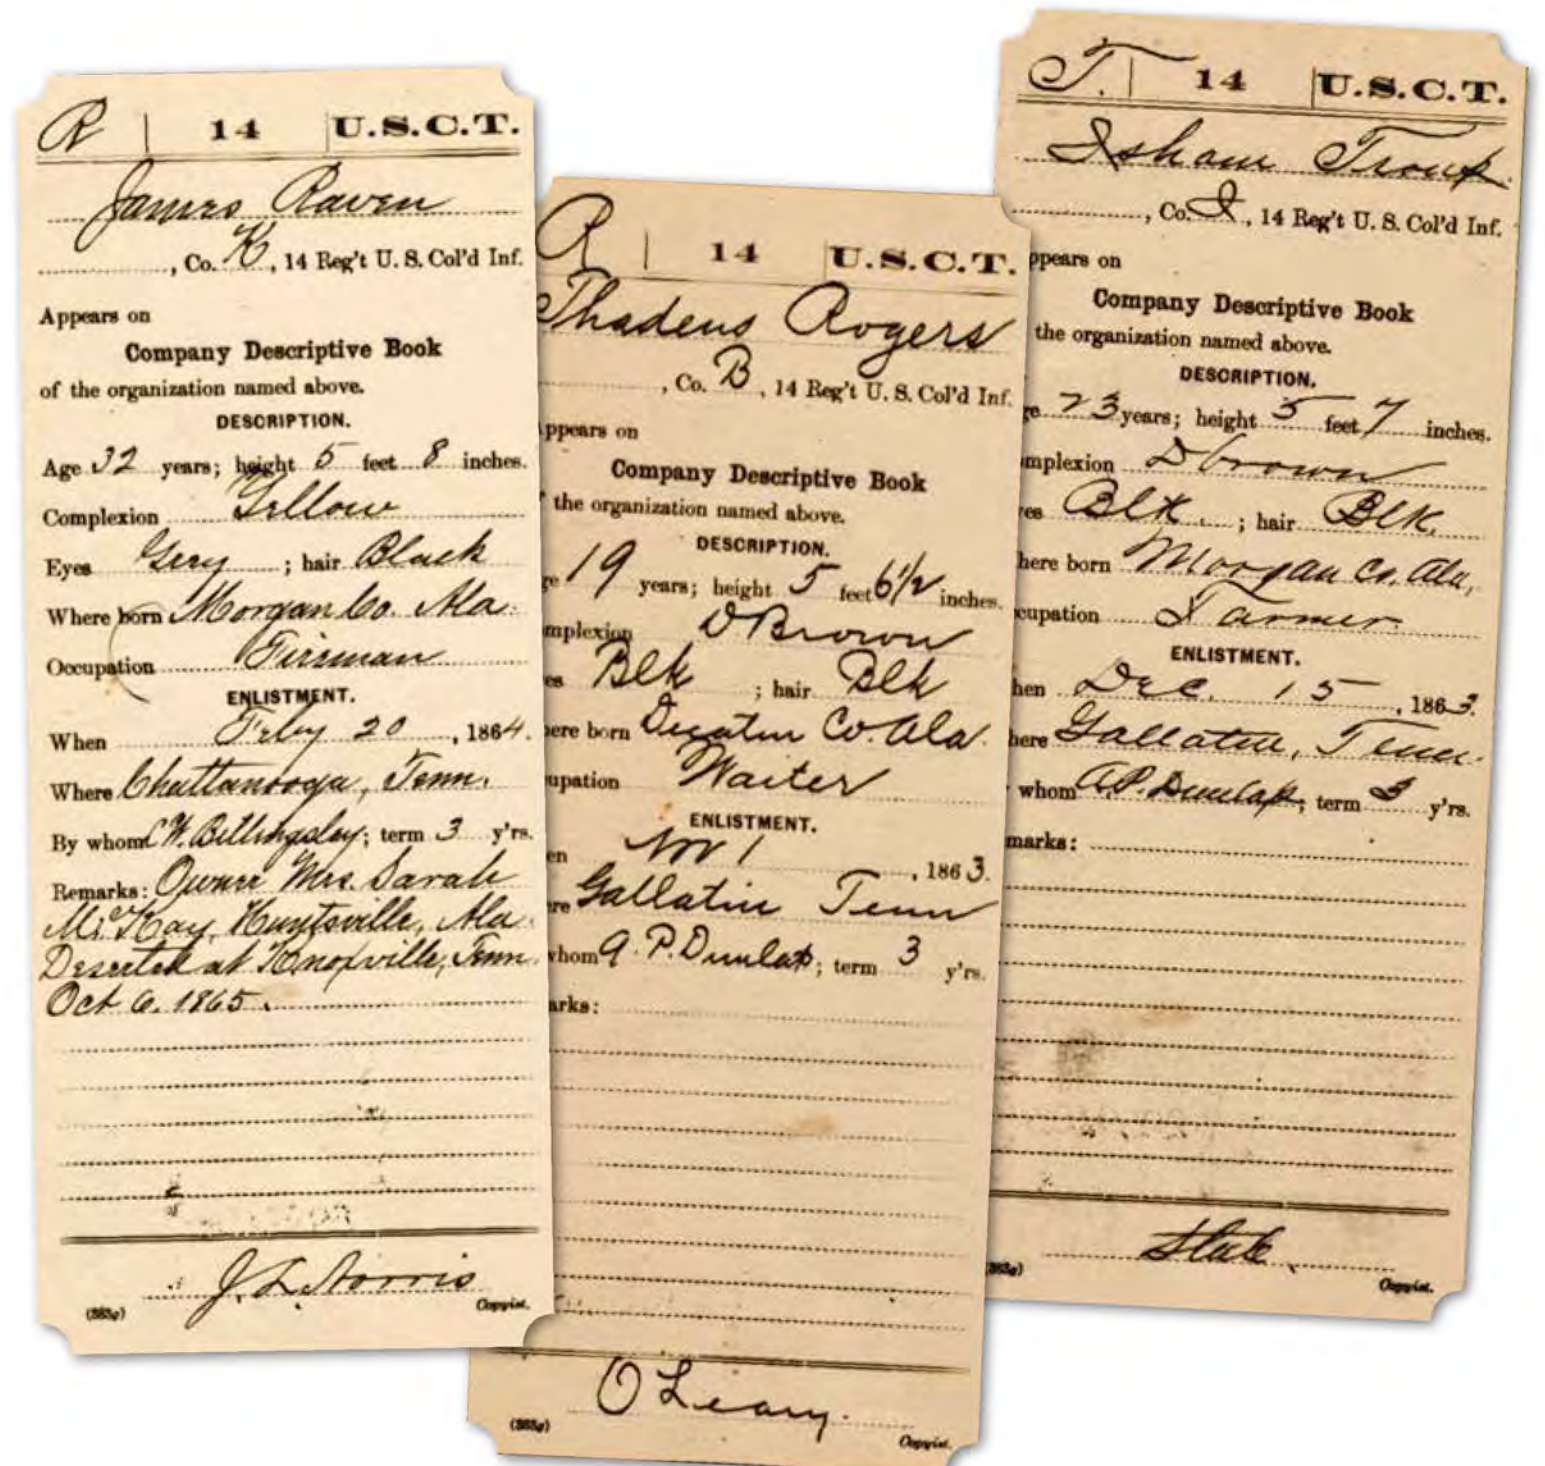 R 14 U.S.C.T.
James Raven
, Co. K, 14 Reg't U. S. Col'd Inf.
Appears on
Company Descriptive Book
of the organization named above.
DESCRIPTION.
Age 32 years; height 5 feet 8 inches.
Complexion Yellow
Eyes Grey; hair Black
Where born Morgan Co. Ala.
Occupation Fireman
ENLISTMENT.
When Feby 20, 1864.
Where Chattanooga, Tenn.
By whom C W. Billingsley; term 3 y'rs.
Remarks: Owner Mrs. Sarah
McKay, Huntsville, Ala.
Deserted at Knoxville, Tenn.
Oct 6. 1865.
J. L. Norris
(383g) Copyist.
R 14 U.S.C.T.
Thadeus Rogers
, Co. B, 14 Reg't U. S. Col'd Inf.
ppears on
Company Descriptive Book
the organization named above.
DESCRIPTION.
ge 19 years; height 5 feet 6 1/2 inches.
mplexion D Brown
es Blk; hair Blk
here born Decatur Co. Ala.
upation Waiter
ENLISTMENT.
en Nov 1, 1863.
re Gallatin Tenn
whom A. P. Dunlap; term 3 y'rs.
arks:
O Leary.
(383g) Copyist.
T. 14 U.S.C.T.
Isham Troup
, Co. I, 14 Reg't U. S. Col'd Inf.
ppears on
Company Descriptive Book
the organization named above.
DESCRIPTION.
ge 23 years; height 5 feet 7 inches.
mplexion D brown
yes Blk.; hair Blk.
here born Morgan Co. Ala,
cupation Farmer
ENLISTMENT.
hen Dec. 15, 1863.
here Gallatin, Tenn.
whom A.P. Dunlap; term 3 y'rs.
marks:
(383g) Copyist.